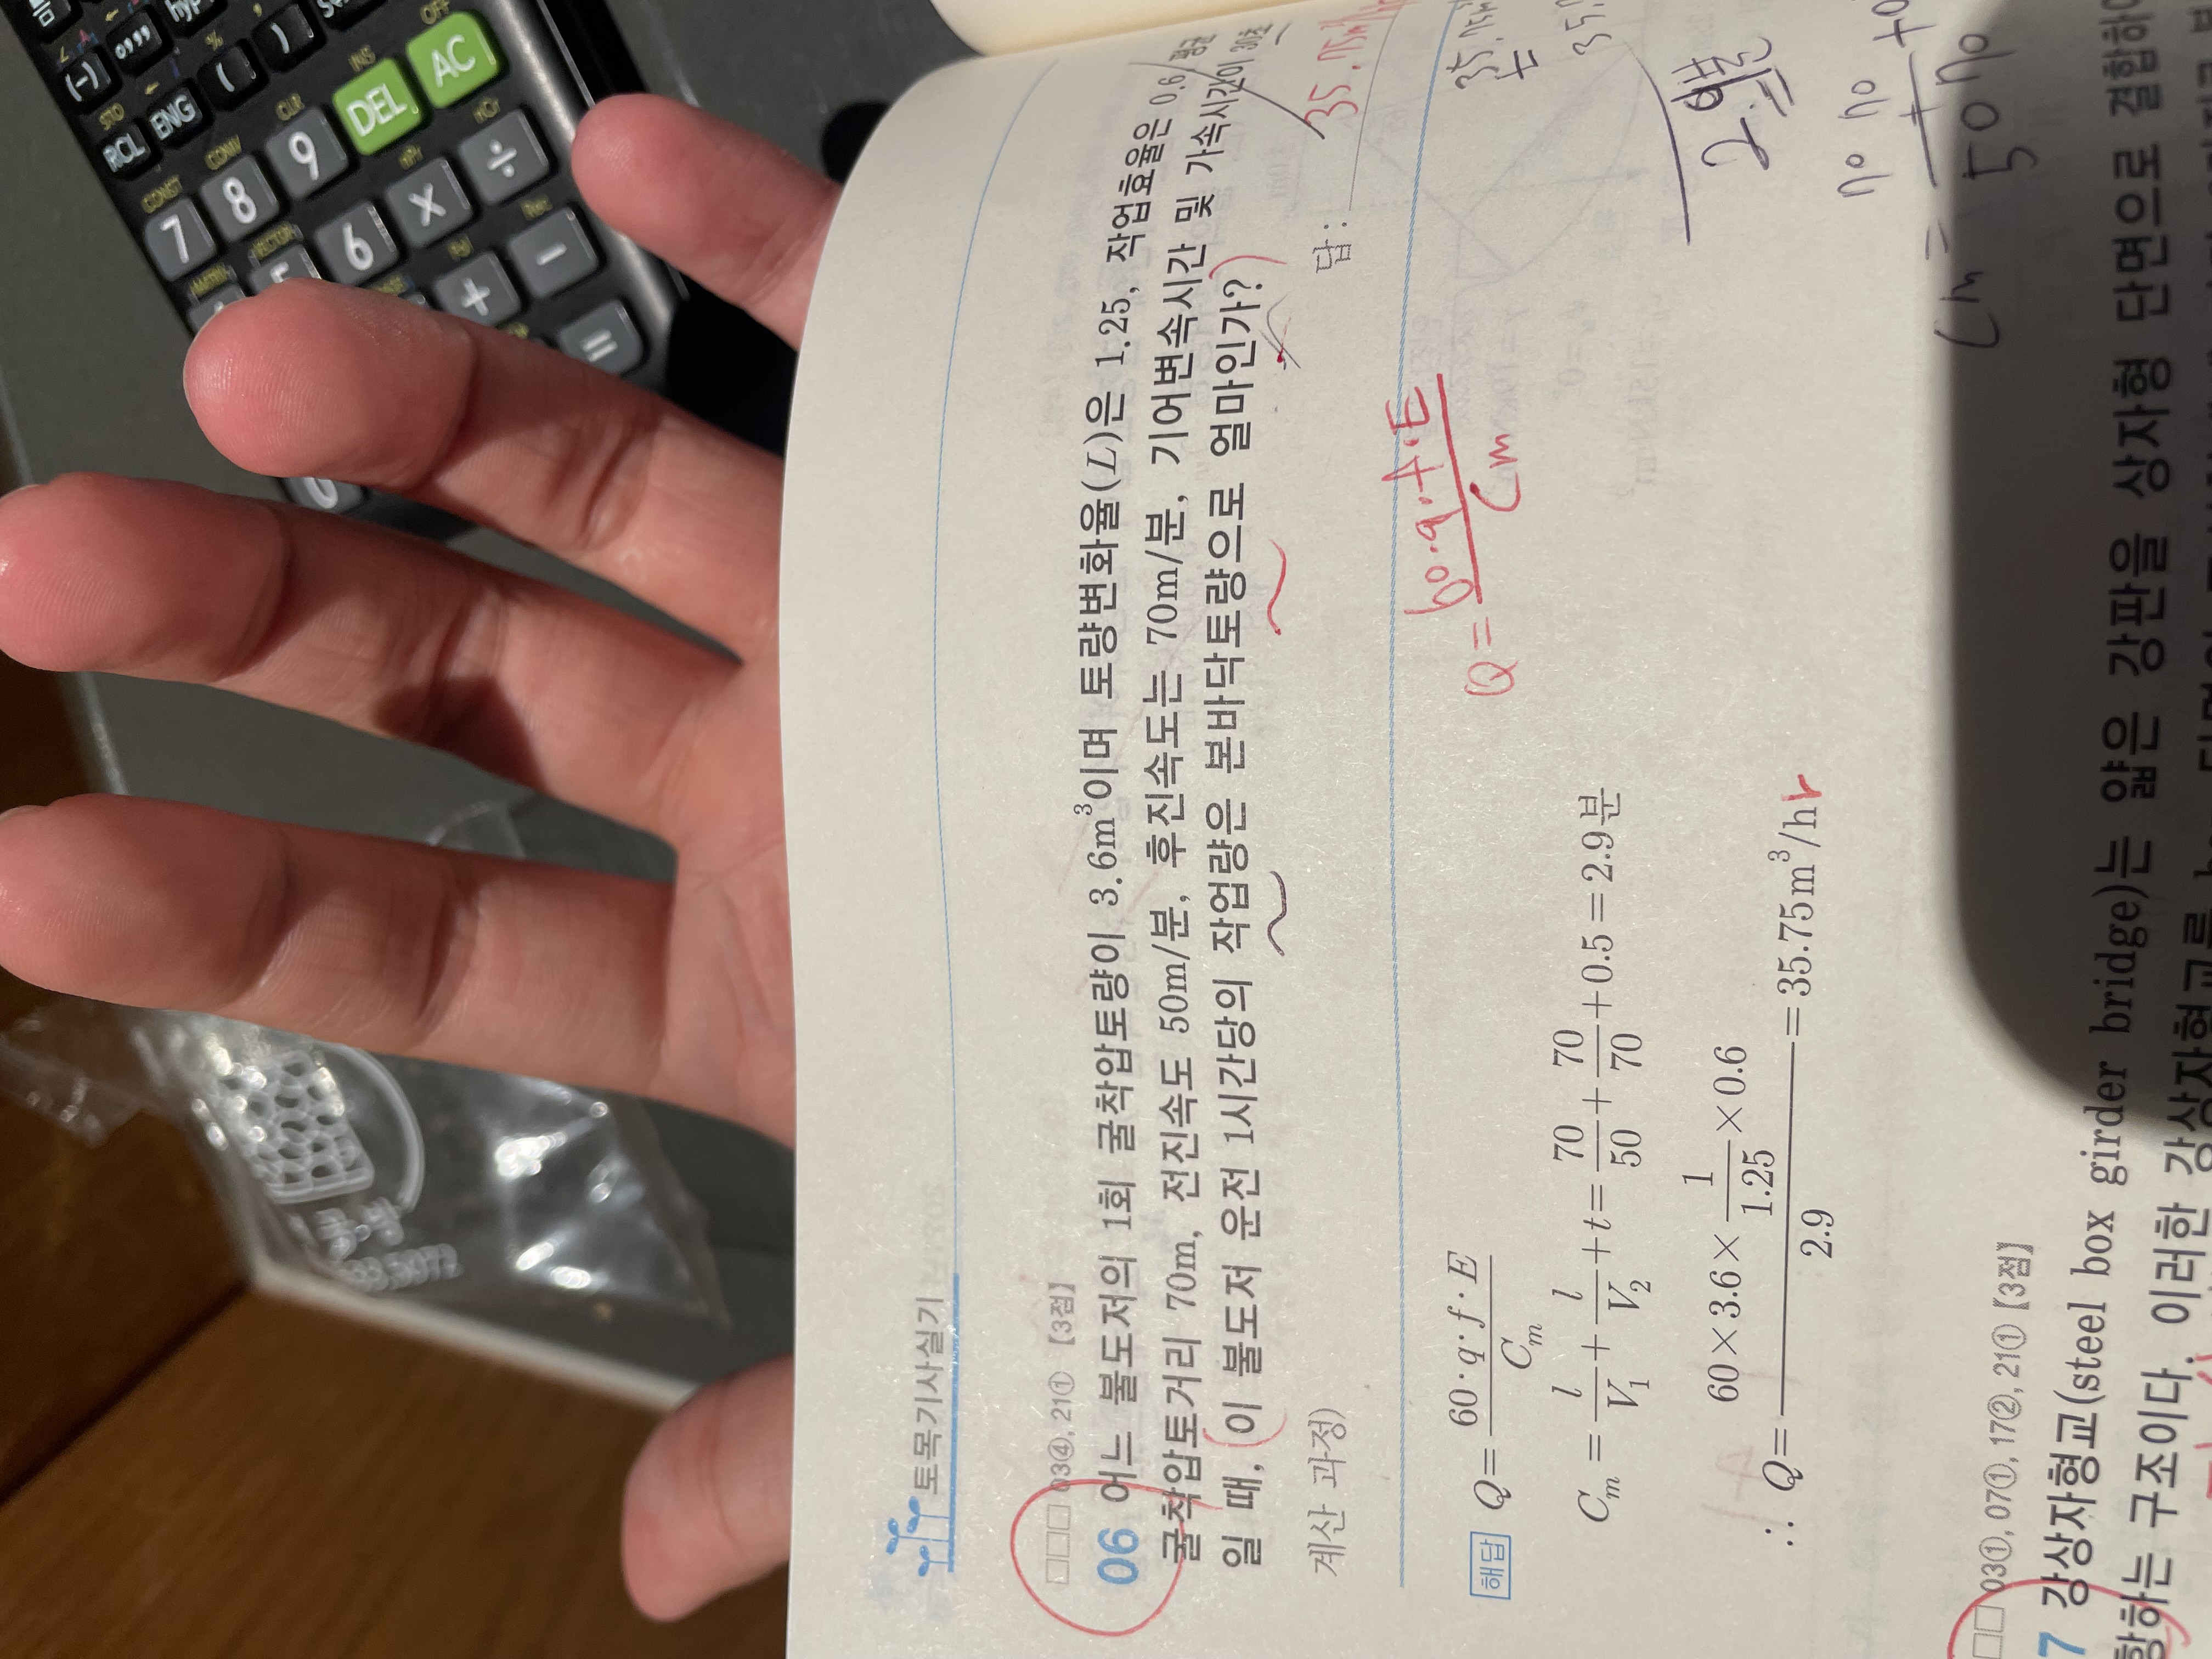 토목기사실기
□□□ 03④, 21① 【3점】
06 어느 불도저의 1회 굴착압토량이 3.6m³이며 토량변화율(L)은 1.25, 작업효율은 0.6, 평균
굴착압토거리 70m, 전진속도 50m/분, 후진속도는 70m/분, 기어변속시간 및 가속시간이 30초
일 때, 이 불도저 운전 1시간당의 작업량은 본바닥토량으로 얼마인가?
계산 과정) 답 : 35.75m³/hr
해답 Q = 60·q·f·E / C_m
Q = 60·q·f·E / Cm
C_m = l/V₁ + l/V₂ + t = 70/50 + 70/70 + 0.5 = 2.9분
2.9분
∴ Q = 60×3.6×1/1.25×0.6 / 2.9 = 35.75m³/hr
□□ 03①, 07①, 17②, 21① 【3점】
7 강상자형교(steel box girder bridge)는 얇은 강판을 상자형 단면으로 결합하
항하는 구조이다. 이러한 강상자형교를
7 8 9 DEL AC
6 × ÷
+ −
=
0
(-) ( )
RCL ENG
STO CONST CONV CLR INS OFF